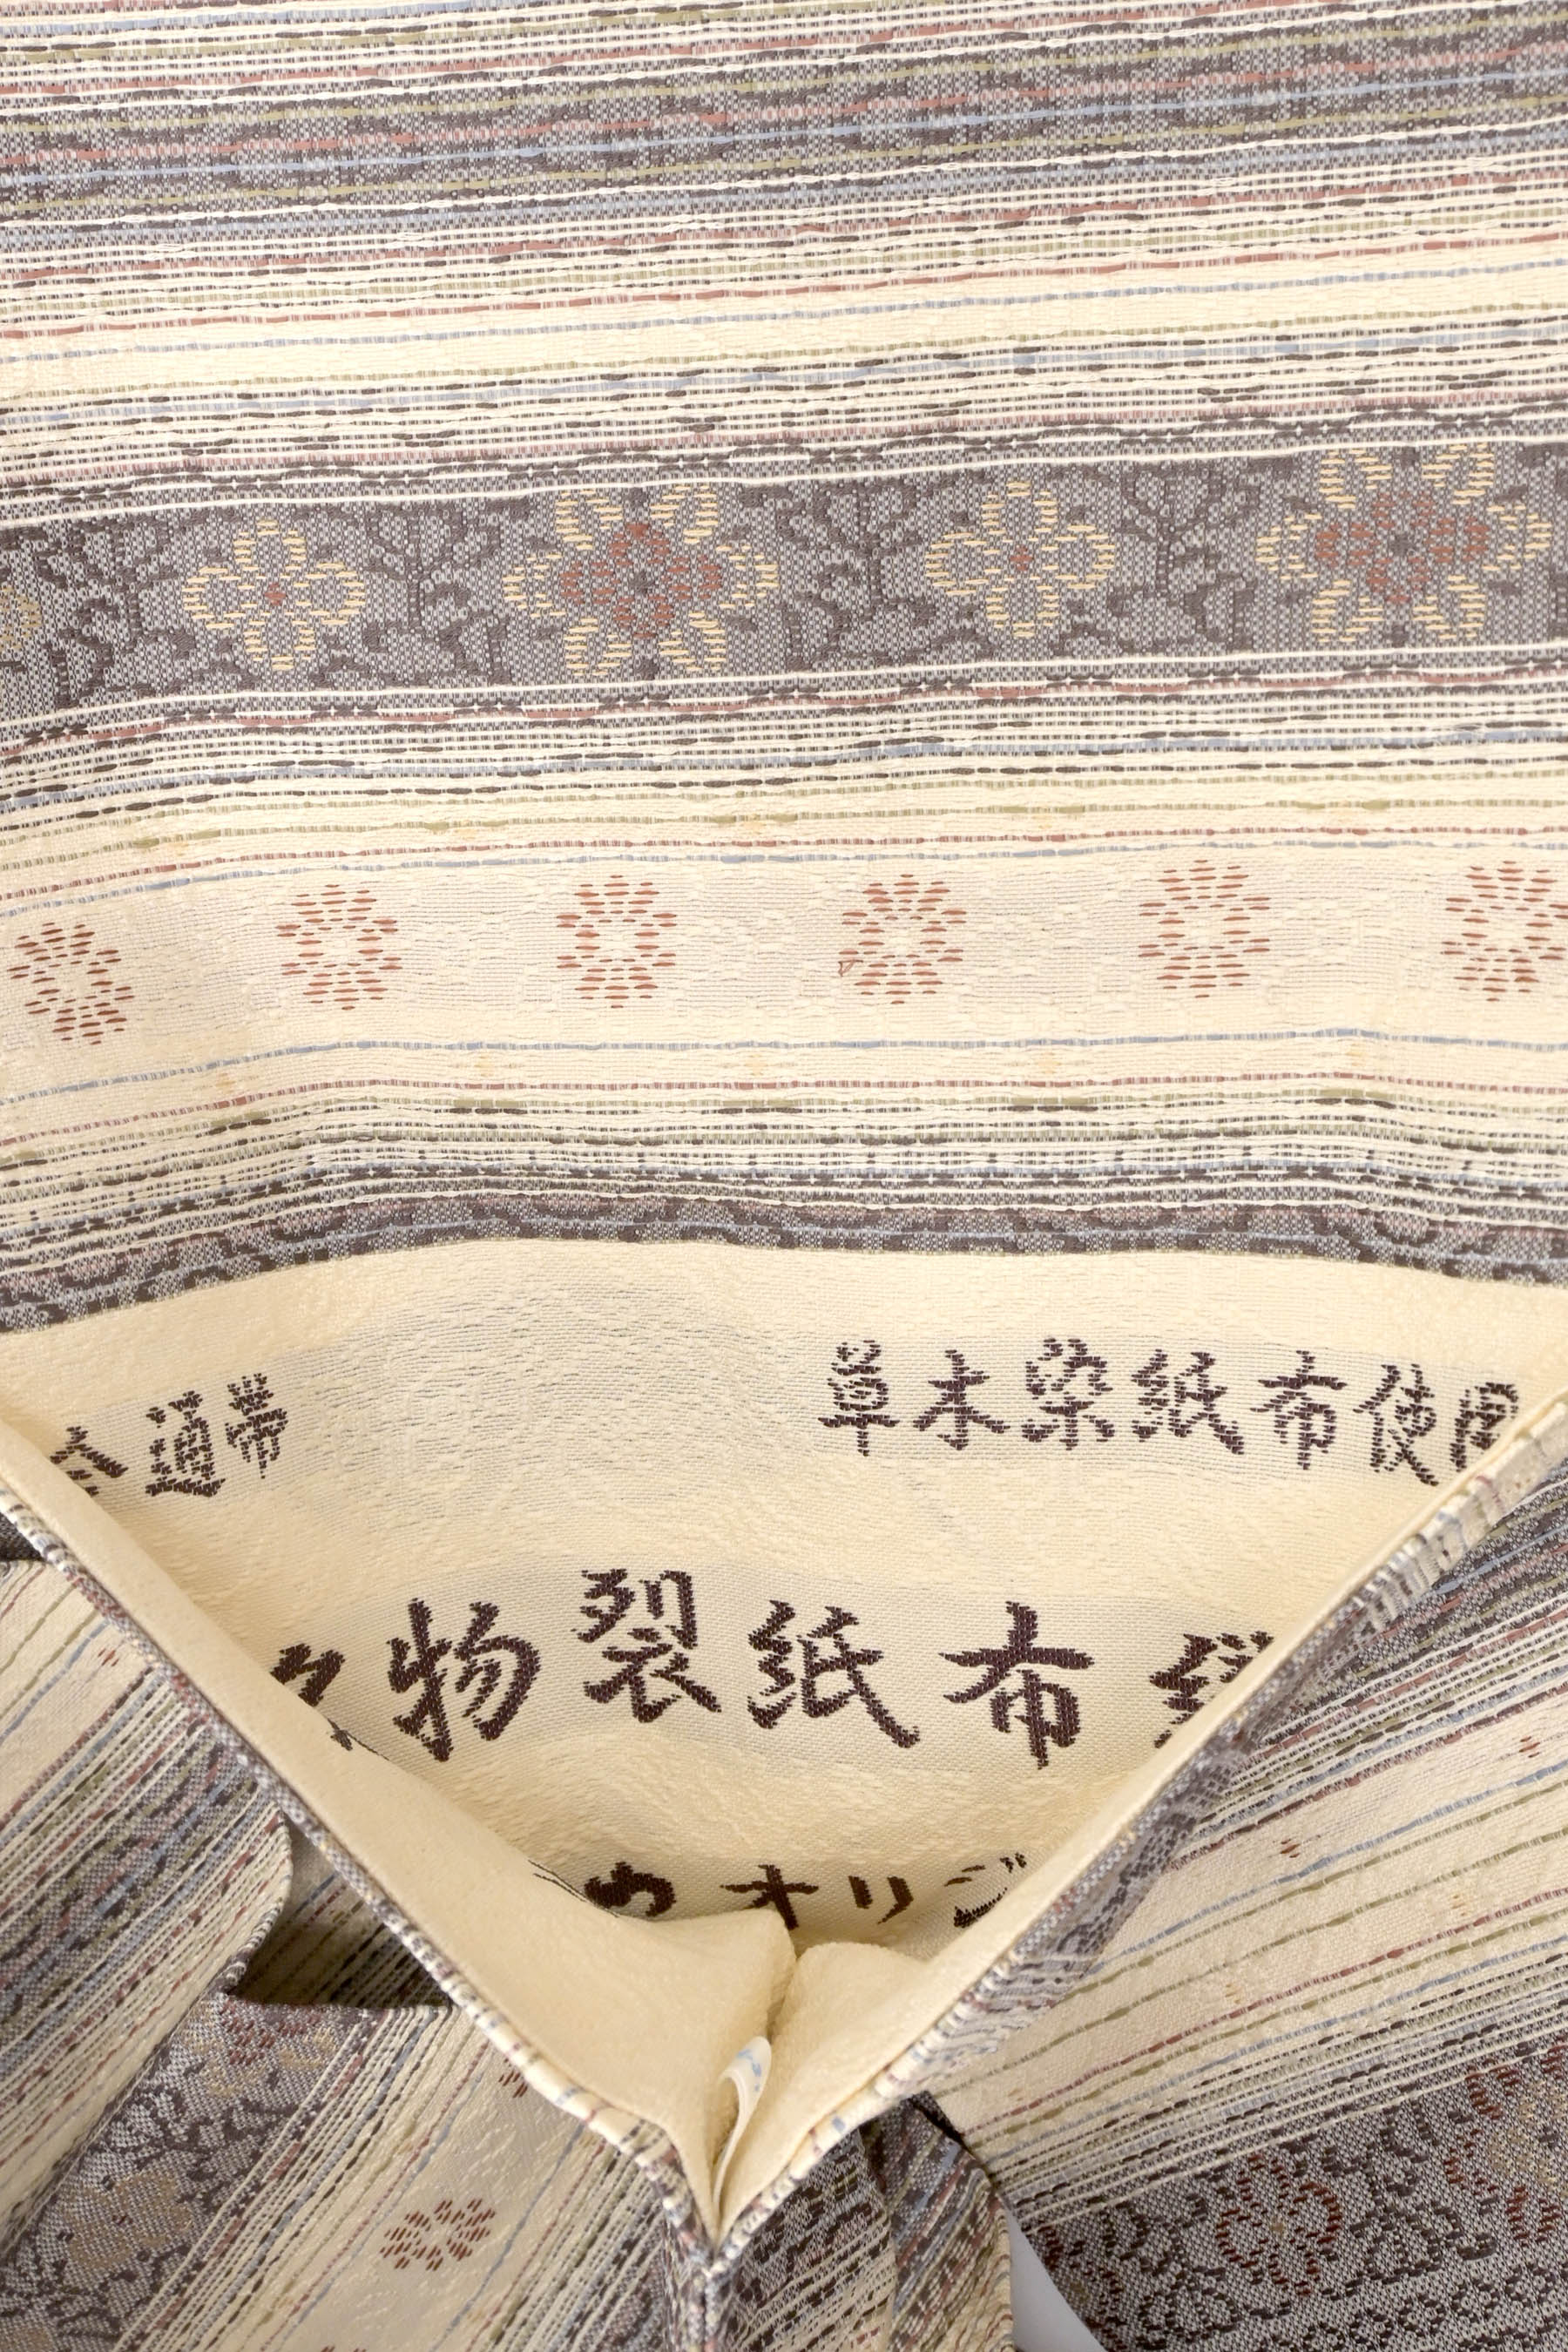 全通帯 草木染紙布使用
名物裂紙布
オリジ